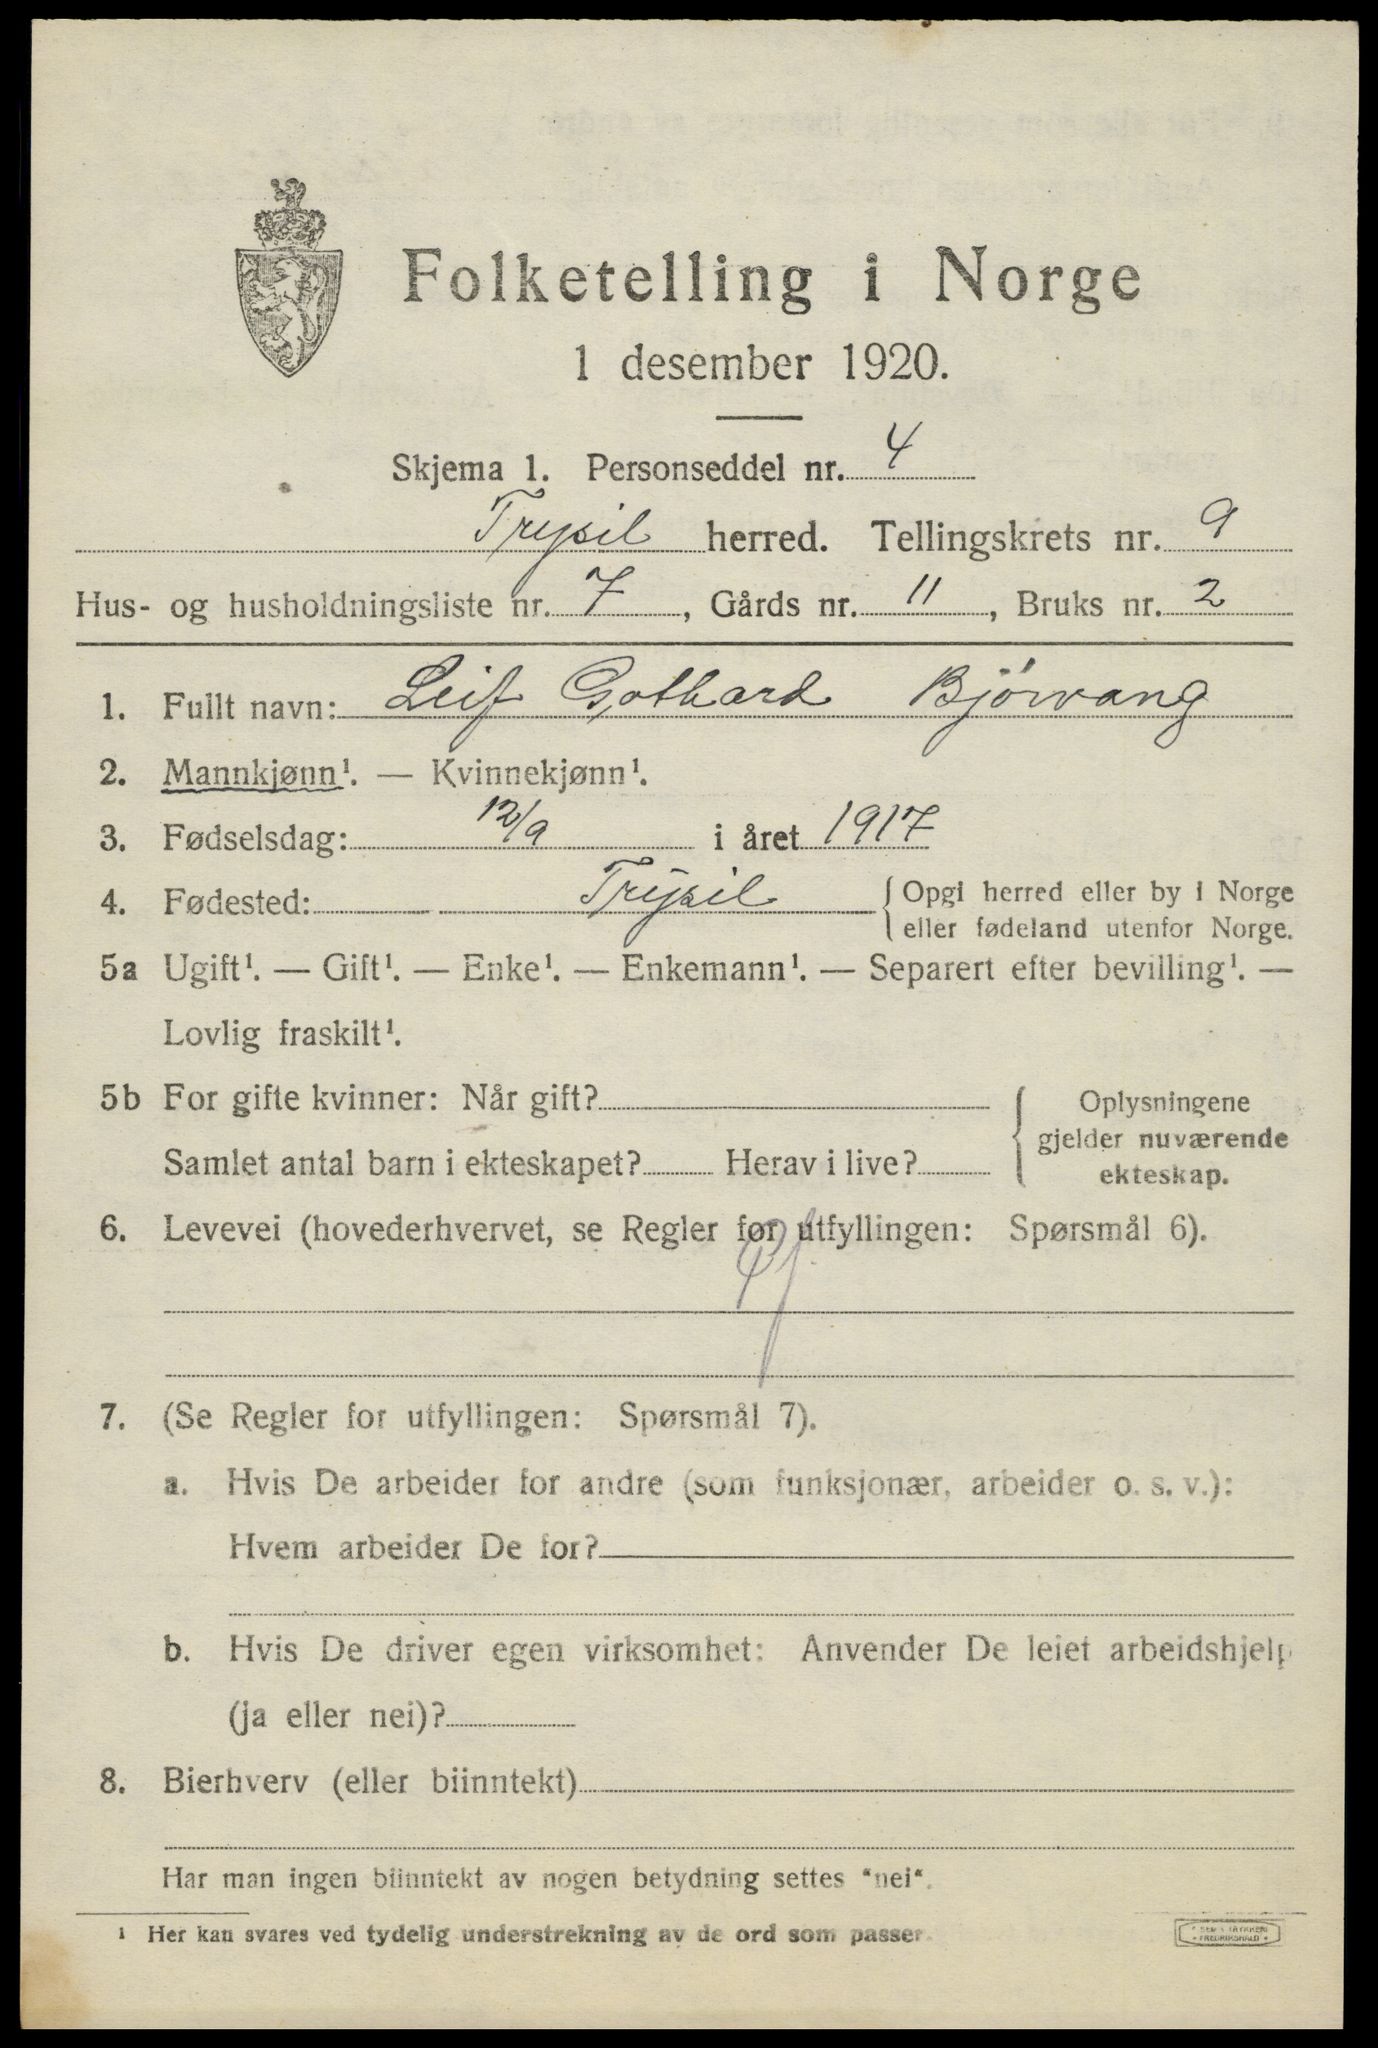 Folketelling i Norge
1 desember 1920.
Skjema 1. Personseddel nr. 4
Trysil herred. Tellingskrets nr. 9
Hus- og husholdningsliste nr. 7, Gårds nr. 11, Bruks nr. 2
1. Fullt navn: Leif Gothard Bjørvang
2. Mannkjønn¹. — Kvinnekjønn¹.
3. Fødselsdag: 12/9 i året 1917
4. Fødested: Trysil {Opgi herred eller by i Norge
eller fødeland utenfor Norge.
5a Ugift¹. — Gift¹. — Enke¹. — Enkemann¹. — Separert efter bevilling¹. —
Lovlig fraskilt¹.
5b For gifte kvinner: Når gift?
Samlet antal barn i ekteskapet? Herav i live?
Oplysningene
gjelder nuværende
ekteskap.
6. Levevei (hovederhvervet, se Regler for utfyllingen: Spørsmål 6).
7. (Se Regler for utfyllingen: Spørsmål 7).
a. Hvis De arbeider for andre (som funksjonær, arbeider o. s. v.):
Hvem arbeider De for?
b. Hvis De driver egen virksomhet: Anvender De leiet arbeidshjelp
(ja eller nei)?
8. Bierhverv (eller biinntekt)
Har man ingen biinntekt av nogen betydning settes "nei".
¹ Her kan svares ved tydelig understrekning av de ord som passer.